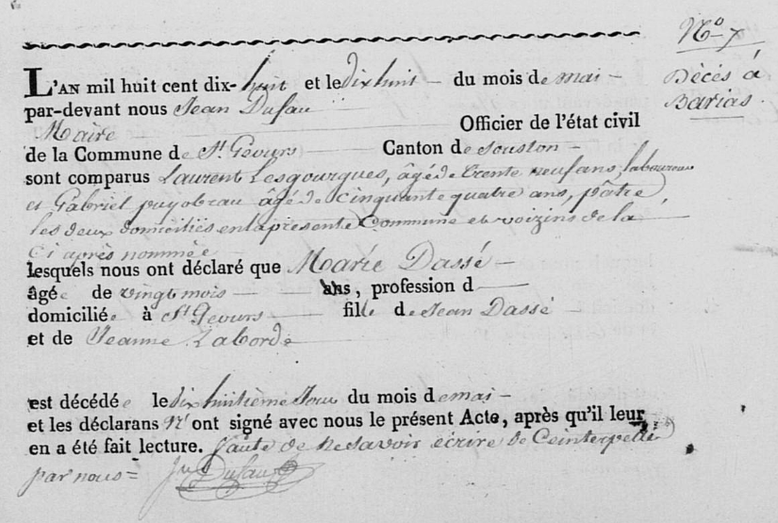 N.o 7
Décés à
Barias.
L'AN mil huit cent dix-huit et le dix huit du mois de mai
par-devant nous Jean Dufau
Maire Officier de l'état civil
de la Commune de St. Geours Canton de Souston
sont comparus Laurent Lesgourgues, âgé de trente neuf ans, laboureur
et Gabriel puyobrau âgé de cinquante quatre ans, pâtre,
les deux domiciliés en la présente Commune et voizins de la
Ci après nommée
lesquels nous ont déclaré que Marie Dassé
âgée de vingt mois ans, profession d
domiciliée à St Geours fille de Jean Dassé
et de Jeanne Laborde
est décédée le dix huitième Jour du mois de mai
et les déclarans n' ont signé avec nous le présent Acte, après qu'il leur
en a été fait lecture. faute de ne savoir écrire de Ce interpellé
par nous =
Dufau